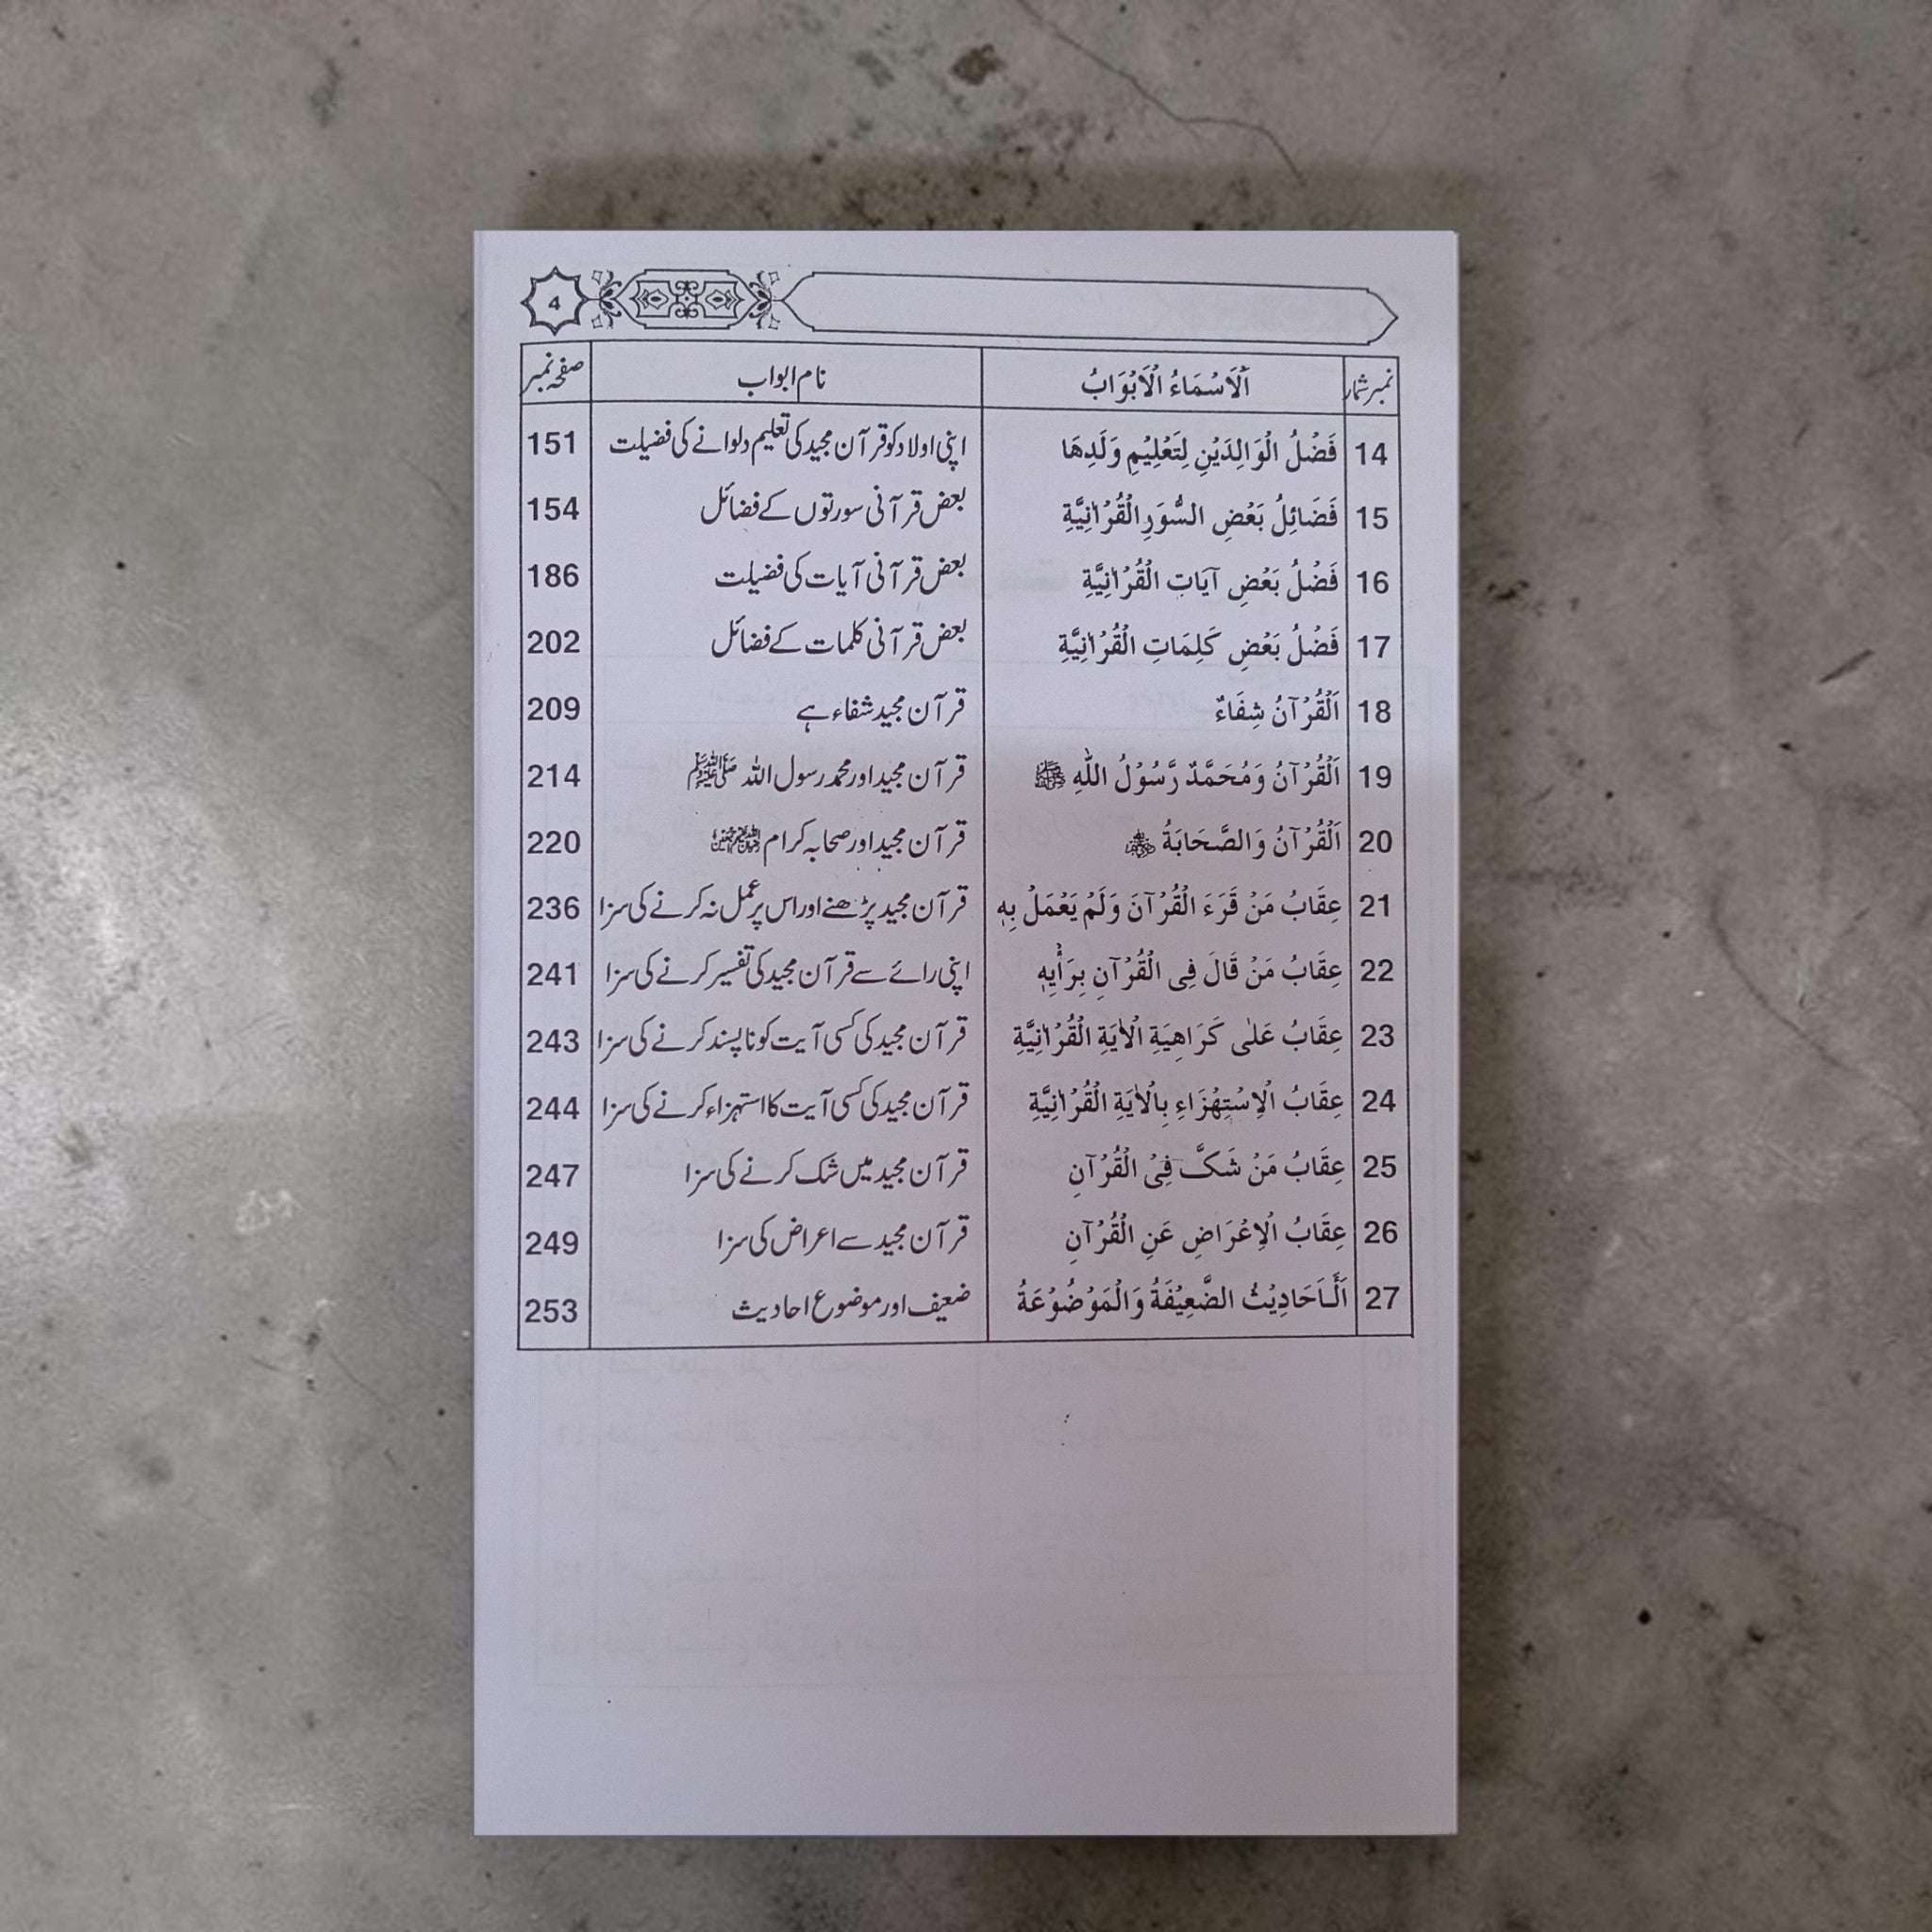 4
نمبر شمار اَلْاَسْمَاءُ الْاَبْوَابُ نام ابواب صفحہ نمبر
14 فَضْلُ الْوَالِدَيْنِ لِتَعْلِيْمِ وَلَدِهَا اپنی اولاد کو قرآن مجید کی تعلیم دلوانے کی فضیلت 151
15 فَضَائِلُ بَعْضِ السُّوَرِ الْقُرْاٰنِيَّةِ بعض قرآنی سورتوں کے فضائل 154
16 فَضْلُ بَعْضِ آيَاتِ الْقُرْاٰنِيَّةِ بعض قرآنی آیات کی فضیلت 186
17 فَضْلُ بَعْضِ كَلِمَاتِ الْقُرْاٰنِيَّةِ بعض قرآنی کلمات کے فضائل 202
18 اَلْقُرْآنُ شِفَاءٌ قرآن مجید شفاء ہے 209
19 اَلْقُرْآنُ وَمُحَمَّدٌ رَّسُوْلُ اللّٰهِ ﷺ قرآن مجید اور محمد رسول اللہ ﷺ 214
20 اَلْقُرْآنُ وَالصَّحَابَةُ قرآن مجید اور صحابہ کرام 220
21 عِقَابُ مَنْ قَرَءَ الْقُرْآنَ وَلَمْ يَعْمَلْ بِهٖ قرآن مجید پڑھنے اور اس پر عمل نہ کرنے کی سزا 236
22 عِقَابُ مَنْ قَالَ فِى الْقُرْآنِ بِرَأْيِهٖ اپنی رائے سے قرآن مجید کی تفسیر کرنے کی سزا 241
23 عِقَابُ عَلٰى كَرَاهِيَةِ الْاٰيَةِ الْقُرْاٰنِيَّةِ قرآن مجید کی کسی آیت کو ناپسند کرنے کی سزا 243
24 عِقَابُ الْاِسْتِهْزَاءِ بِالْاٰيَةِ الْقُرْاٰنِيَّةِ قرآن مجید کی کسی آیت کا استہزاء کرنے کی سزا 244
25 عِقَابُ مَنْ شَكَّ فِىْ الْقُرْآنِ قرآن مجید میں شک کرنے کی سزا 247
26 عِقَابُ الْاِعْرَاضِ عَنِ الْقُرْآنِ قرآن مجید سے اعراض کی سزا 249
27 اَلْاَحَادِيْثُ الضَّعِيْفَةُ وَالْمَوْضُوْعَةُ ضعیف اور موضوع احادیث 253